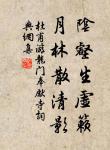 陰壑生虛籟
月林散清影
杜甫游龍門奉獻寺詞
與網集